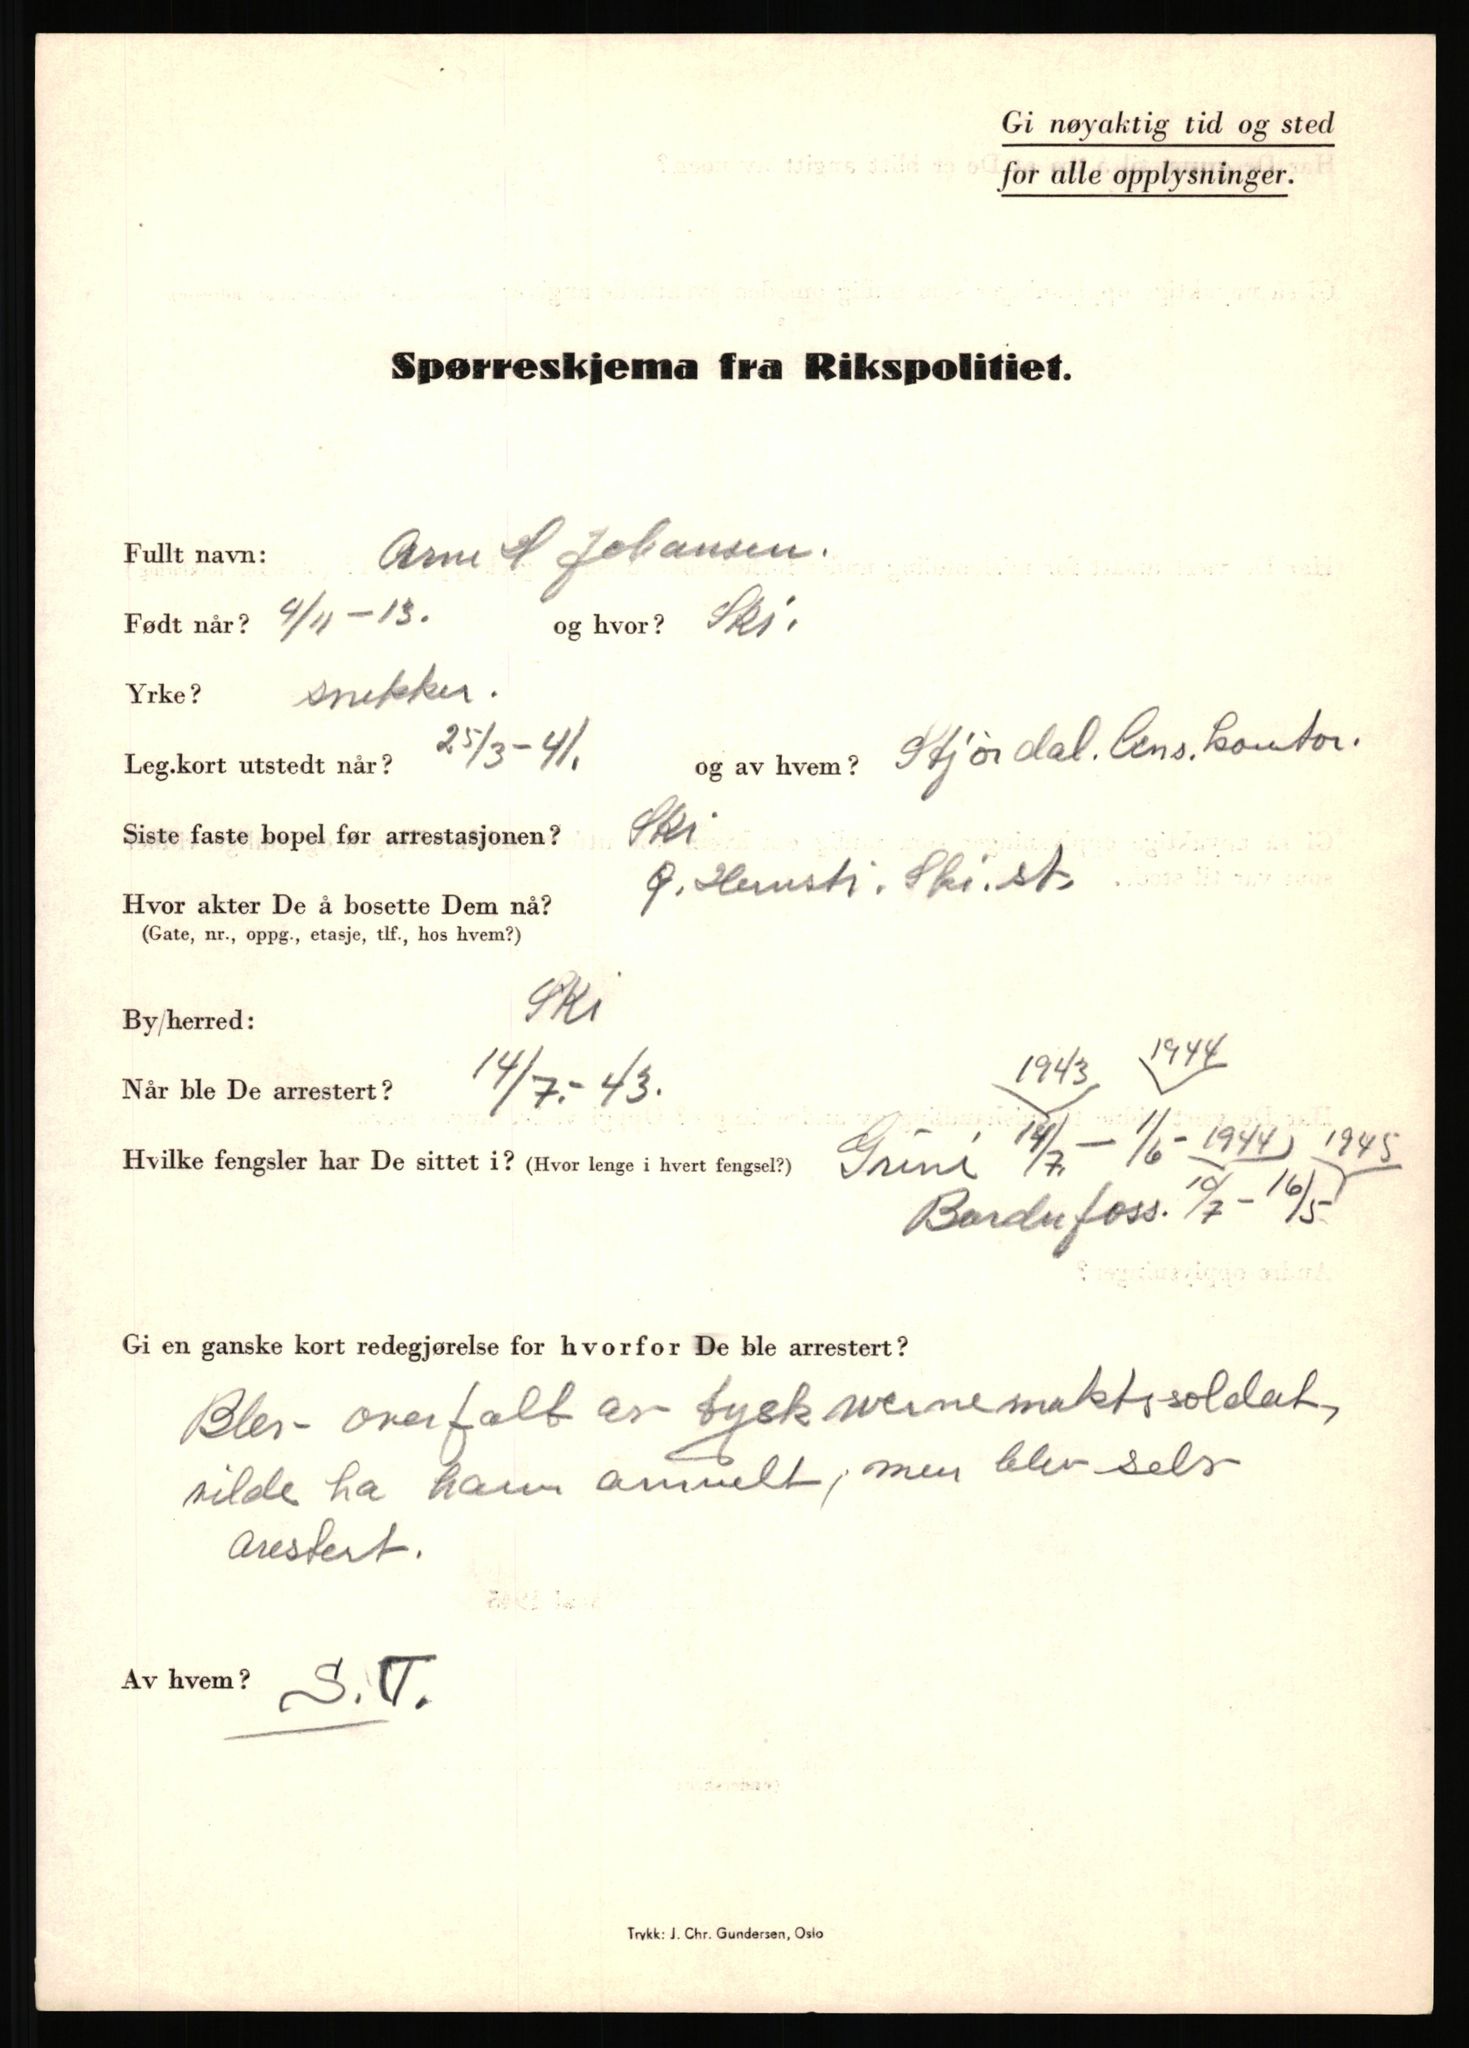 Gi nøyaktig tid og sted
for alle opplysninger.
Spørreskjema fra Rikspolitiet.
Fullt navn: Arne H Johansen.
Født når? 4/11-13. og hvor? Ski.
Yrke? snekker.
Leg.kort utstedt når? 25/3-41. og av hvem? Stjördal. Lens. kontor.
Siste faste bopel før arrestasjonen? Ski
Hvor akter De å bosette Dem nå? Hernsti. Ski. st.
(Gate, nr., oppg., etasje, tlf., hos hvem?)
By/herred: Ski
Når ble De arrestert? 14/7.-43.
1943 1944
Hvilke fengsler har De sittet i? (Hvor lenge i hvert fengsel?) Grini 14/7. - 1/6 - 1944 1945
Bardufoss. 10/7 - 16/5
Gi en ganske kort redegjørelse for hvorfor De ble arrestert?
Blev overfalt av tysk wernemaktssoldat,
vilde ha ham anmelt, men blev selv
arestert.
Av hvem? S.T.
Trykk: J. Chr. Gundersen, Oslo